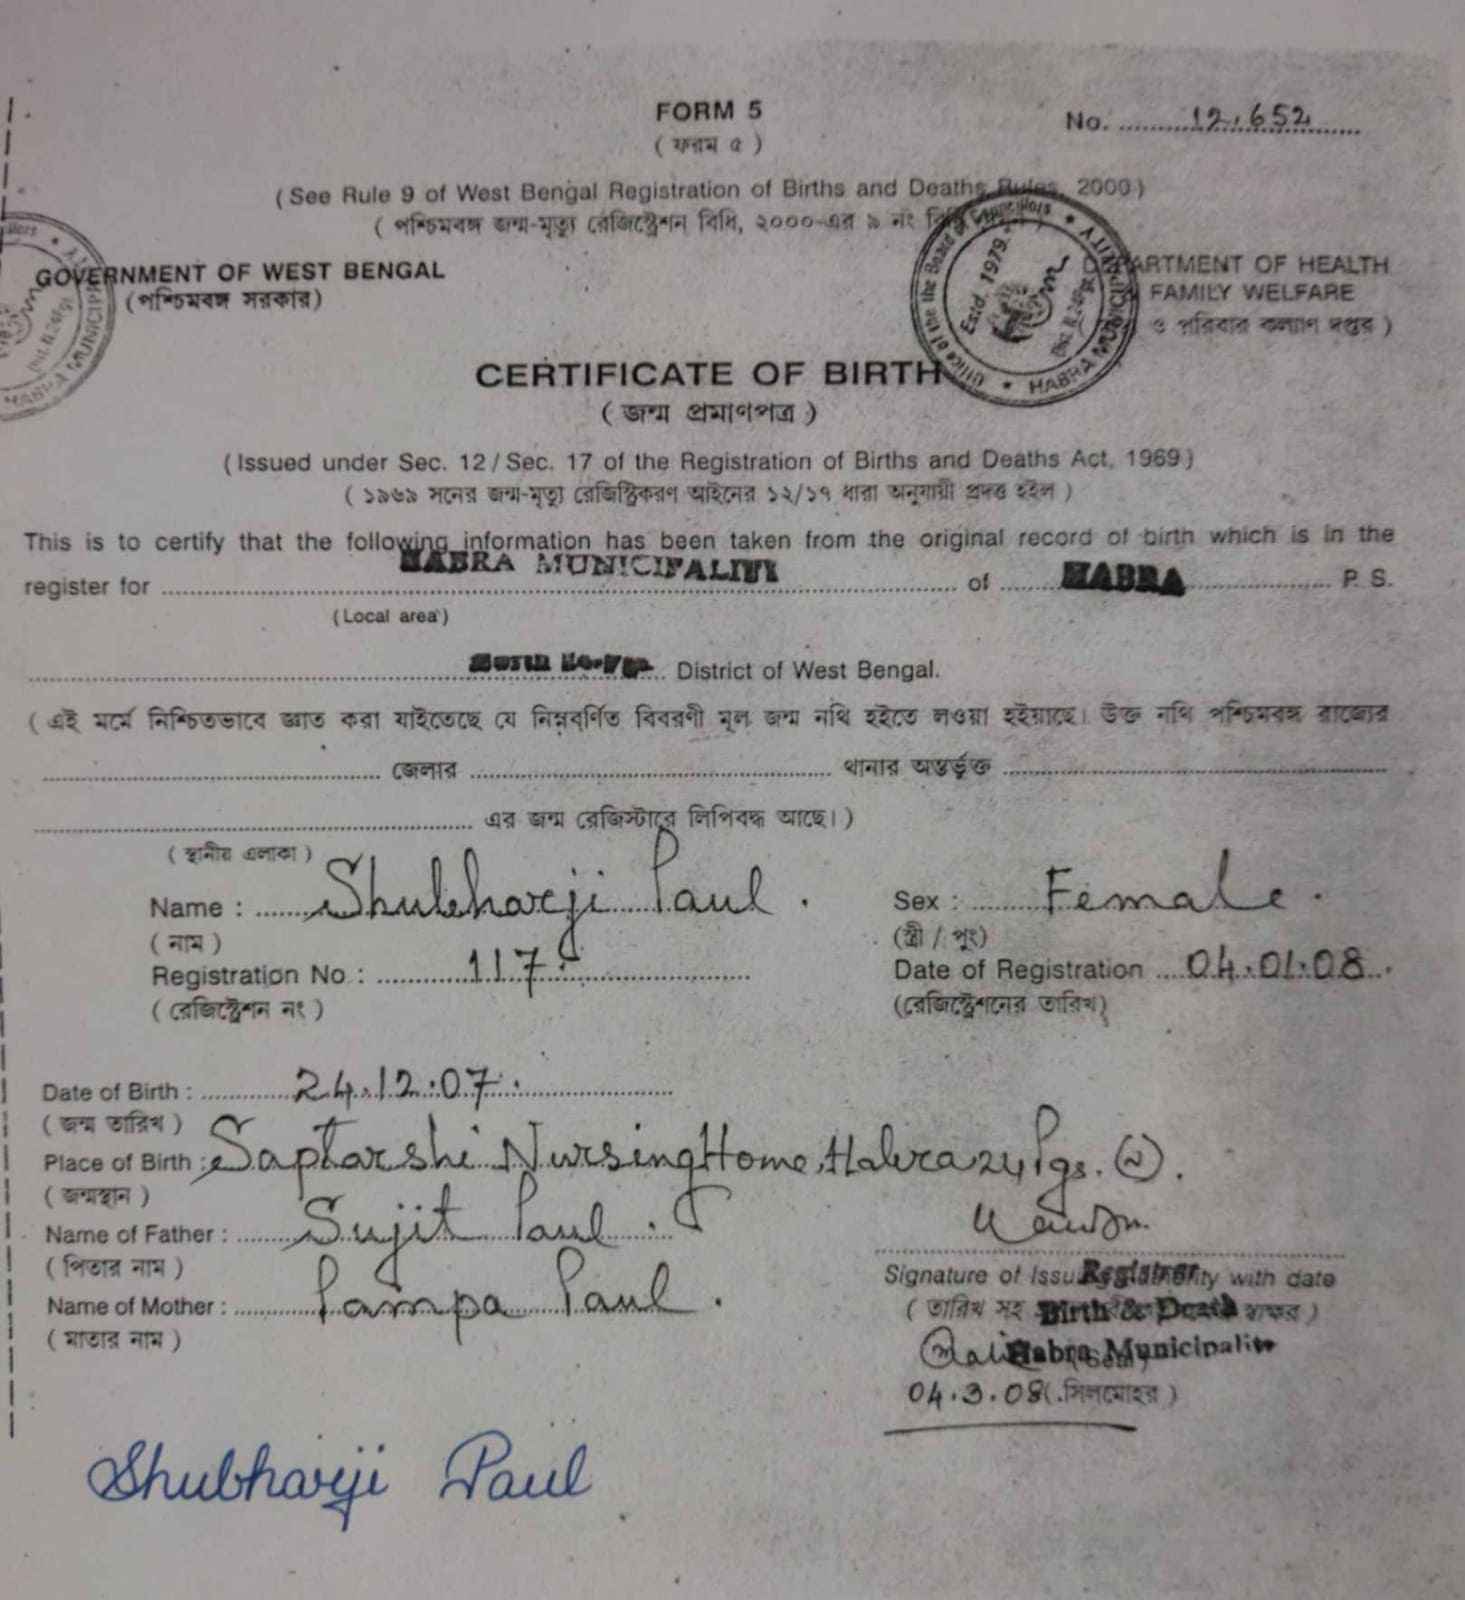 FORM 5
No. 12,652
( ফরম ৫ )
( See Rule 9 of West Bengal Registration of Births and Deaths Rules, 2000 )
( পশ্চিমবঙ্গ জন্ম-মৃত্যু রেজিস্ট্রেশন বিধি, ২০০০-এর ৯ নং
Office of the the Board of Councillors ★ HABRA MUNICIPALITY ★
Estd. 1979.
GOVERNMENT OF WEST BENGAL
DEPARTMENT OF HEALTH
(পশ্চিমবঙ্গ সরকার)
FAMILY WELFARE
ও পরিবার কল্যাণ দপ্তর )
CERTIFICATE OF BIRTH
( জন্ম প্রমাণপত্র )
( Issued under Sec. 12 / Sec. 17 of the Registration of Births and Deaths Act, 1969 )
( ১৯৬৯ সনের জন্ম-মৃত্যু রেজিস্ট্রিকরণ আইনের ১২/১৭ ধারা অনুযায়ী প্রদত্ত হইল )
This is to certify that the following information has been taken from the original record of birth which is in the
register for HABRA MUNICIPALITY of HABRA P. S.
( Local area )
North District of West Bengal.
( এই মর্মে নিশ্চিতভাবে জ্ঞাত করা যাইতেছে যে নিম্নবর্ণিত বিবরণী মূল জন্ম নথি হইতে লওয়া হইয়াছে। উক্ত নথি পশ্চিমবঙ্গ রাজ্যের
জেলার থানার অন্তর্ভূক্ত
এর জন্ম রেজিস্টারে লিপিবদ্ধ আছে। )
( স্থানীয় এলাকা )
Name : Shubharji Paul . Sex : Female .
( নাম ) (স্ত্রী / পুং)
Registration No : 117. Date of Registration 04.01.08.
( রেজিস্ট্রেশন নং ) (রেজিস্ট্রেশনের তারিখ)
Date of Birth : 24.12.07.
( জন্ম তারিখ )
Place of Birth : Saptarshi Nursing Home, Habra 24 Pgs. (N).
( জন্মস্থান )
Name of Father : Sujit Paul .
( পিতার নাম )
Signature of Issuing Authority with date
Registrar
Name of Mother : Pampa Paul .
( তারিখ সহ স্বাক্ষর )
Birth & Death
( মাতার নাম )
Habra Municipality
(Seal)
04.3.08 ( সিলমোহর )
Shubharji Paul